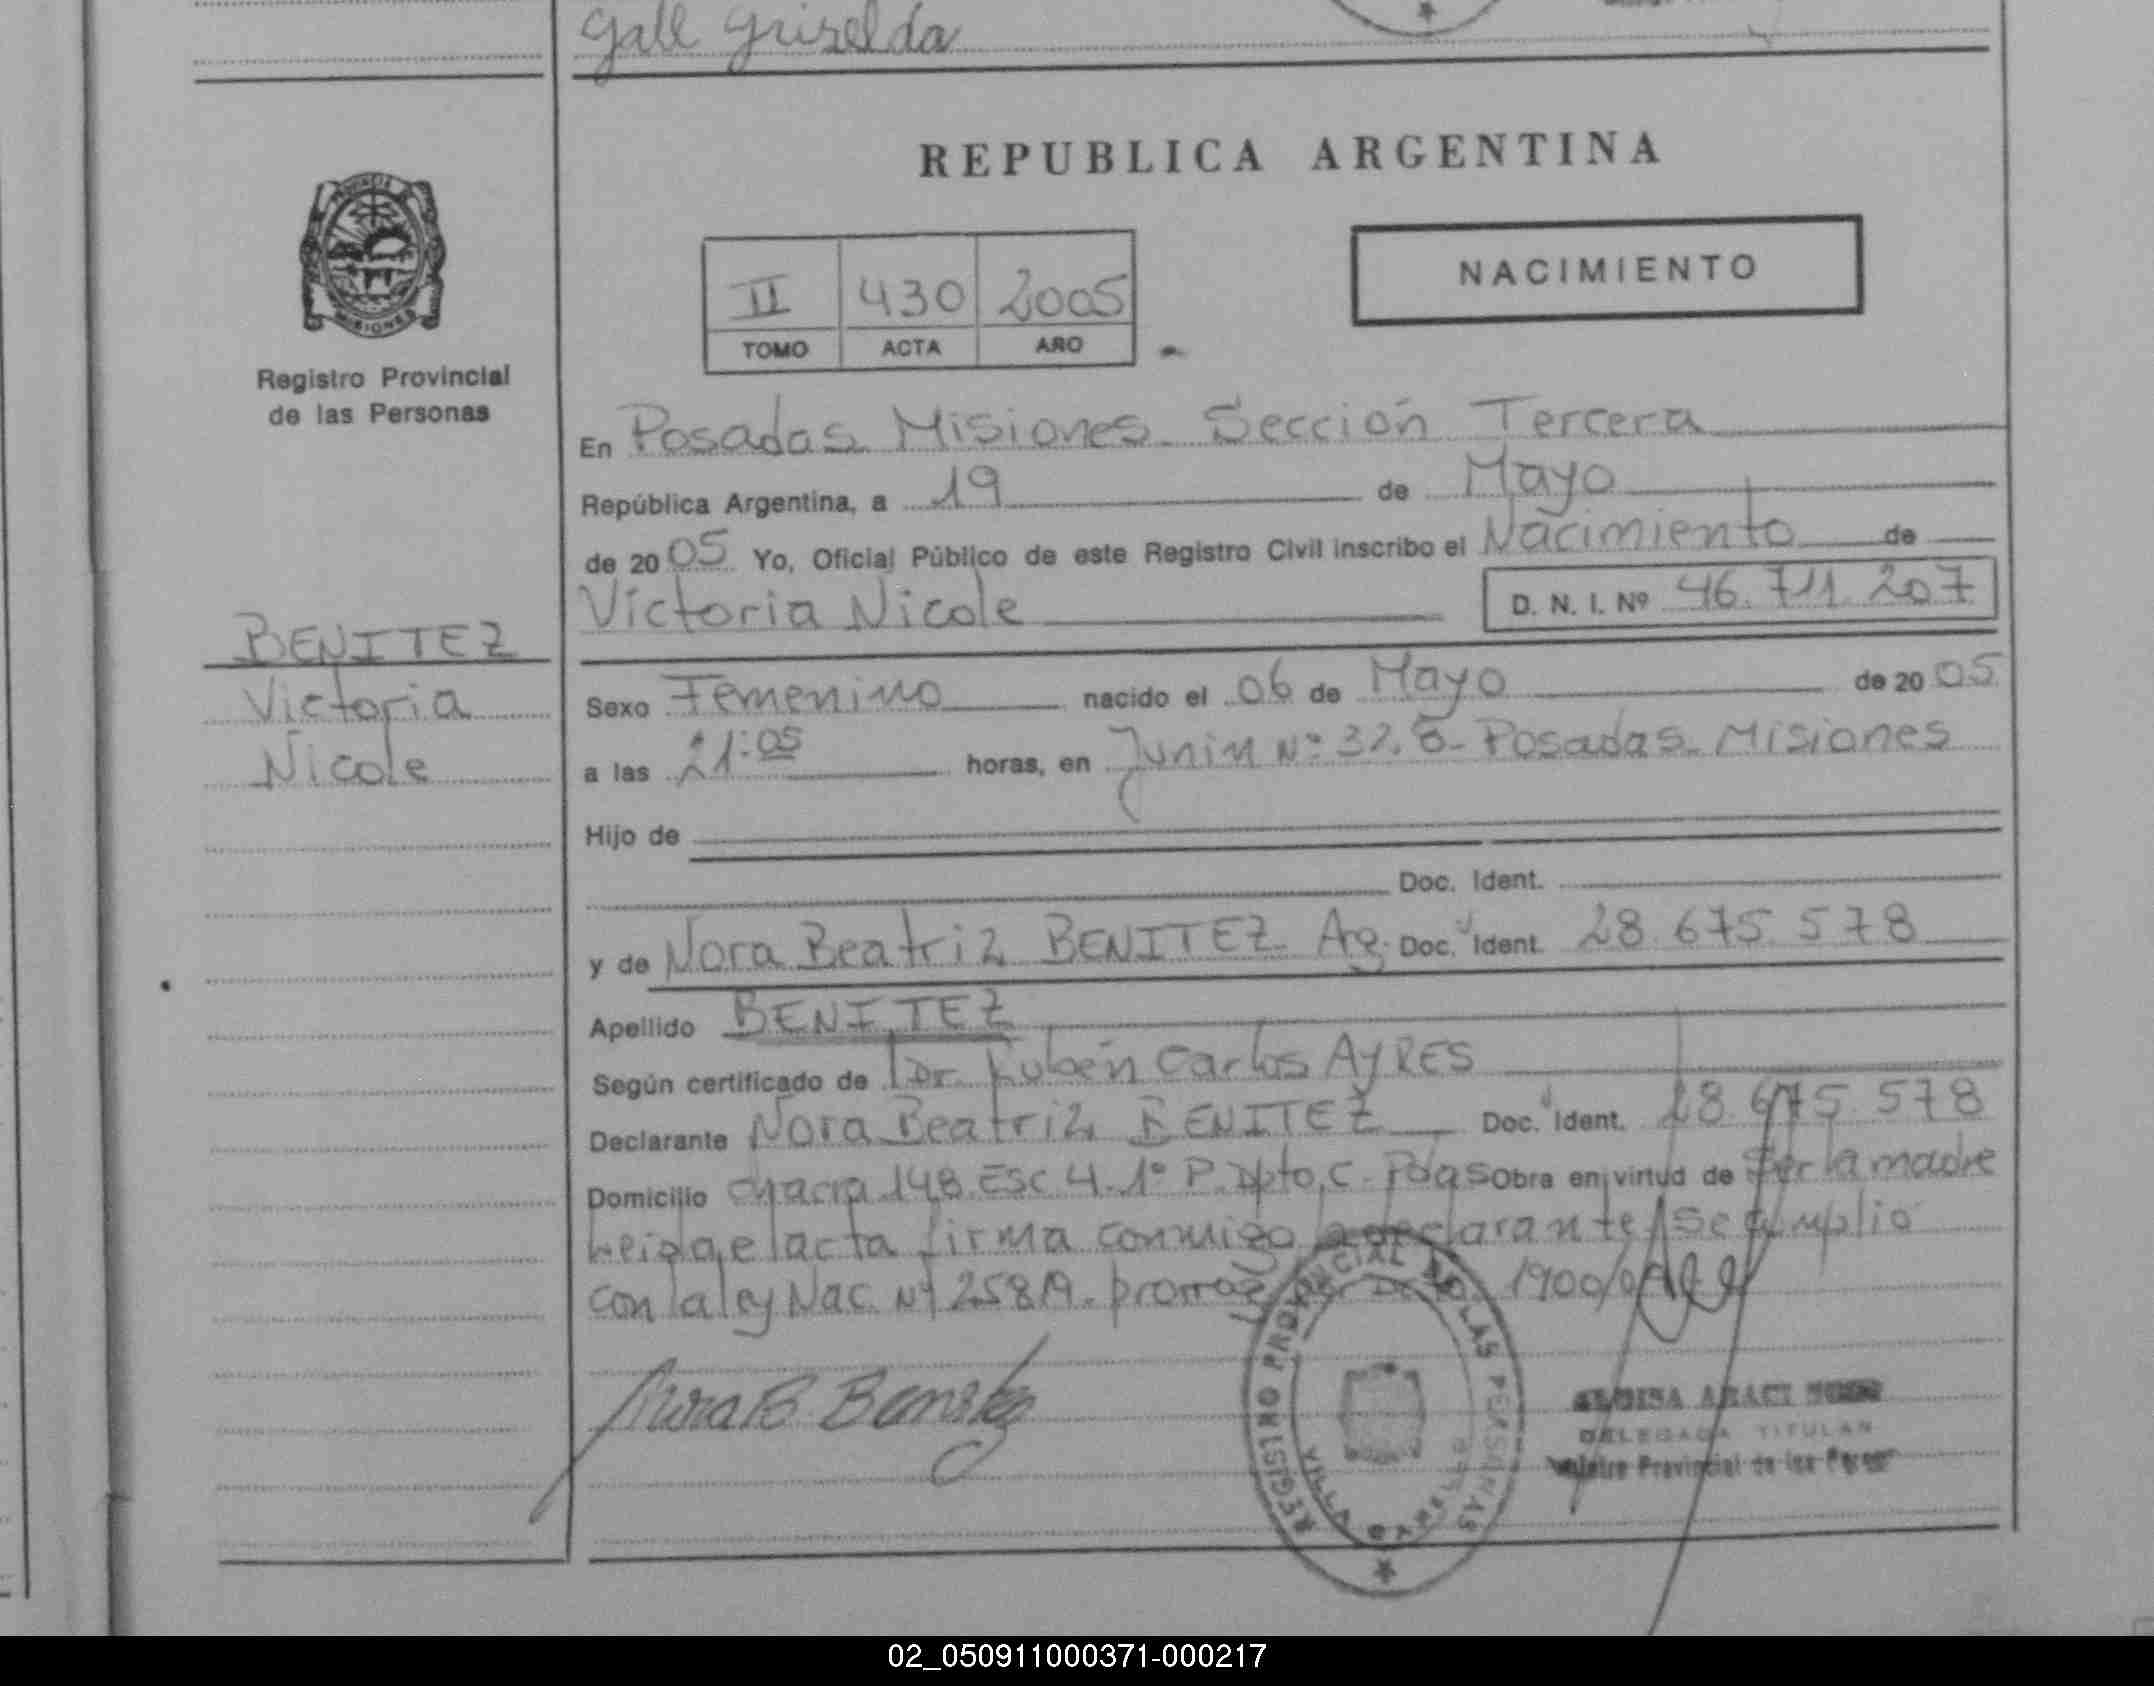 Gall Griselda
REPUBLICA ARGENTINA
PROVINCIA DE
MISIONES
Registro Provincial
de las Personas
NACIMIENTO
II 430 2005
TOMO ACTA AÑO
En Posadas Misiones Sección Tercera
República Argentina, a 19 de Mayo
de 2005 Yo, Oficial Público de este Registro Civil inscribo el Nacimiento de
Victoria Nicole D. N. I. Nº 46.711.207
BENITEZ
Victoria
Nicole
Sexo Femenino nacido el 06 de Mayo de 2005
a las 21:05 horas, en Junin Nº Posadas Misiones
Hijo de
Doc. Ident.
y de Nora Beatriz BENITEZ Ag. Doc. Ident. 28.675.578
Apellido BENITEZ
Según certificado de Dr. Rubén Carlos AYRES
Declarante Nora Beatriz BENITEZ Doc. Ident. 28.675.578
Domicilio chacra 148 Esc 4. 1º P. Dpto. C. Pdas Obra en virtud de Ser la madre
Leida el acta firma conmigo la declarante, se cumplio
con la ley Nac. Nº 25819. 1900/04
Nora B. Benitez
REGISTRO PROVINCIAL DE LAS PERSONAS
VILLA
DELEGADA TITULAR
Registro Provincial de las Personas
02_050911000371-000217